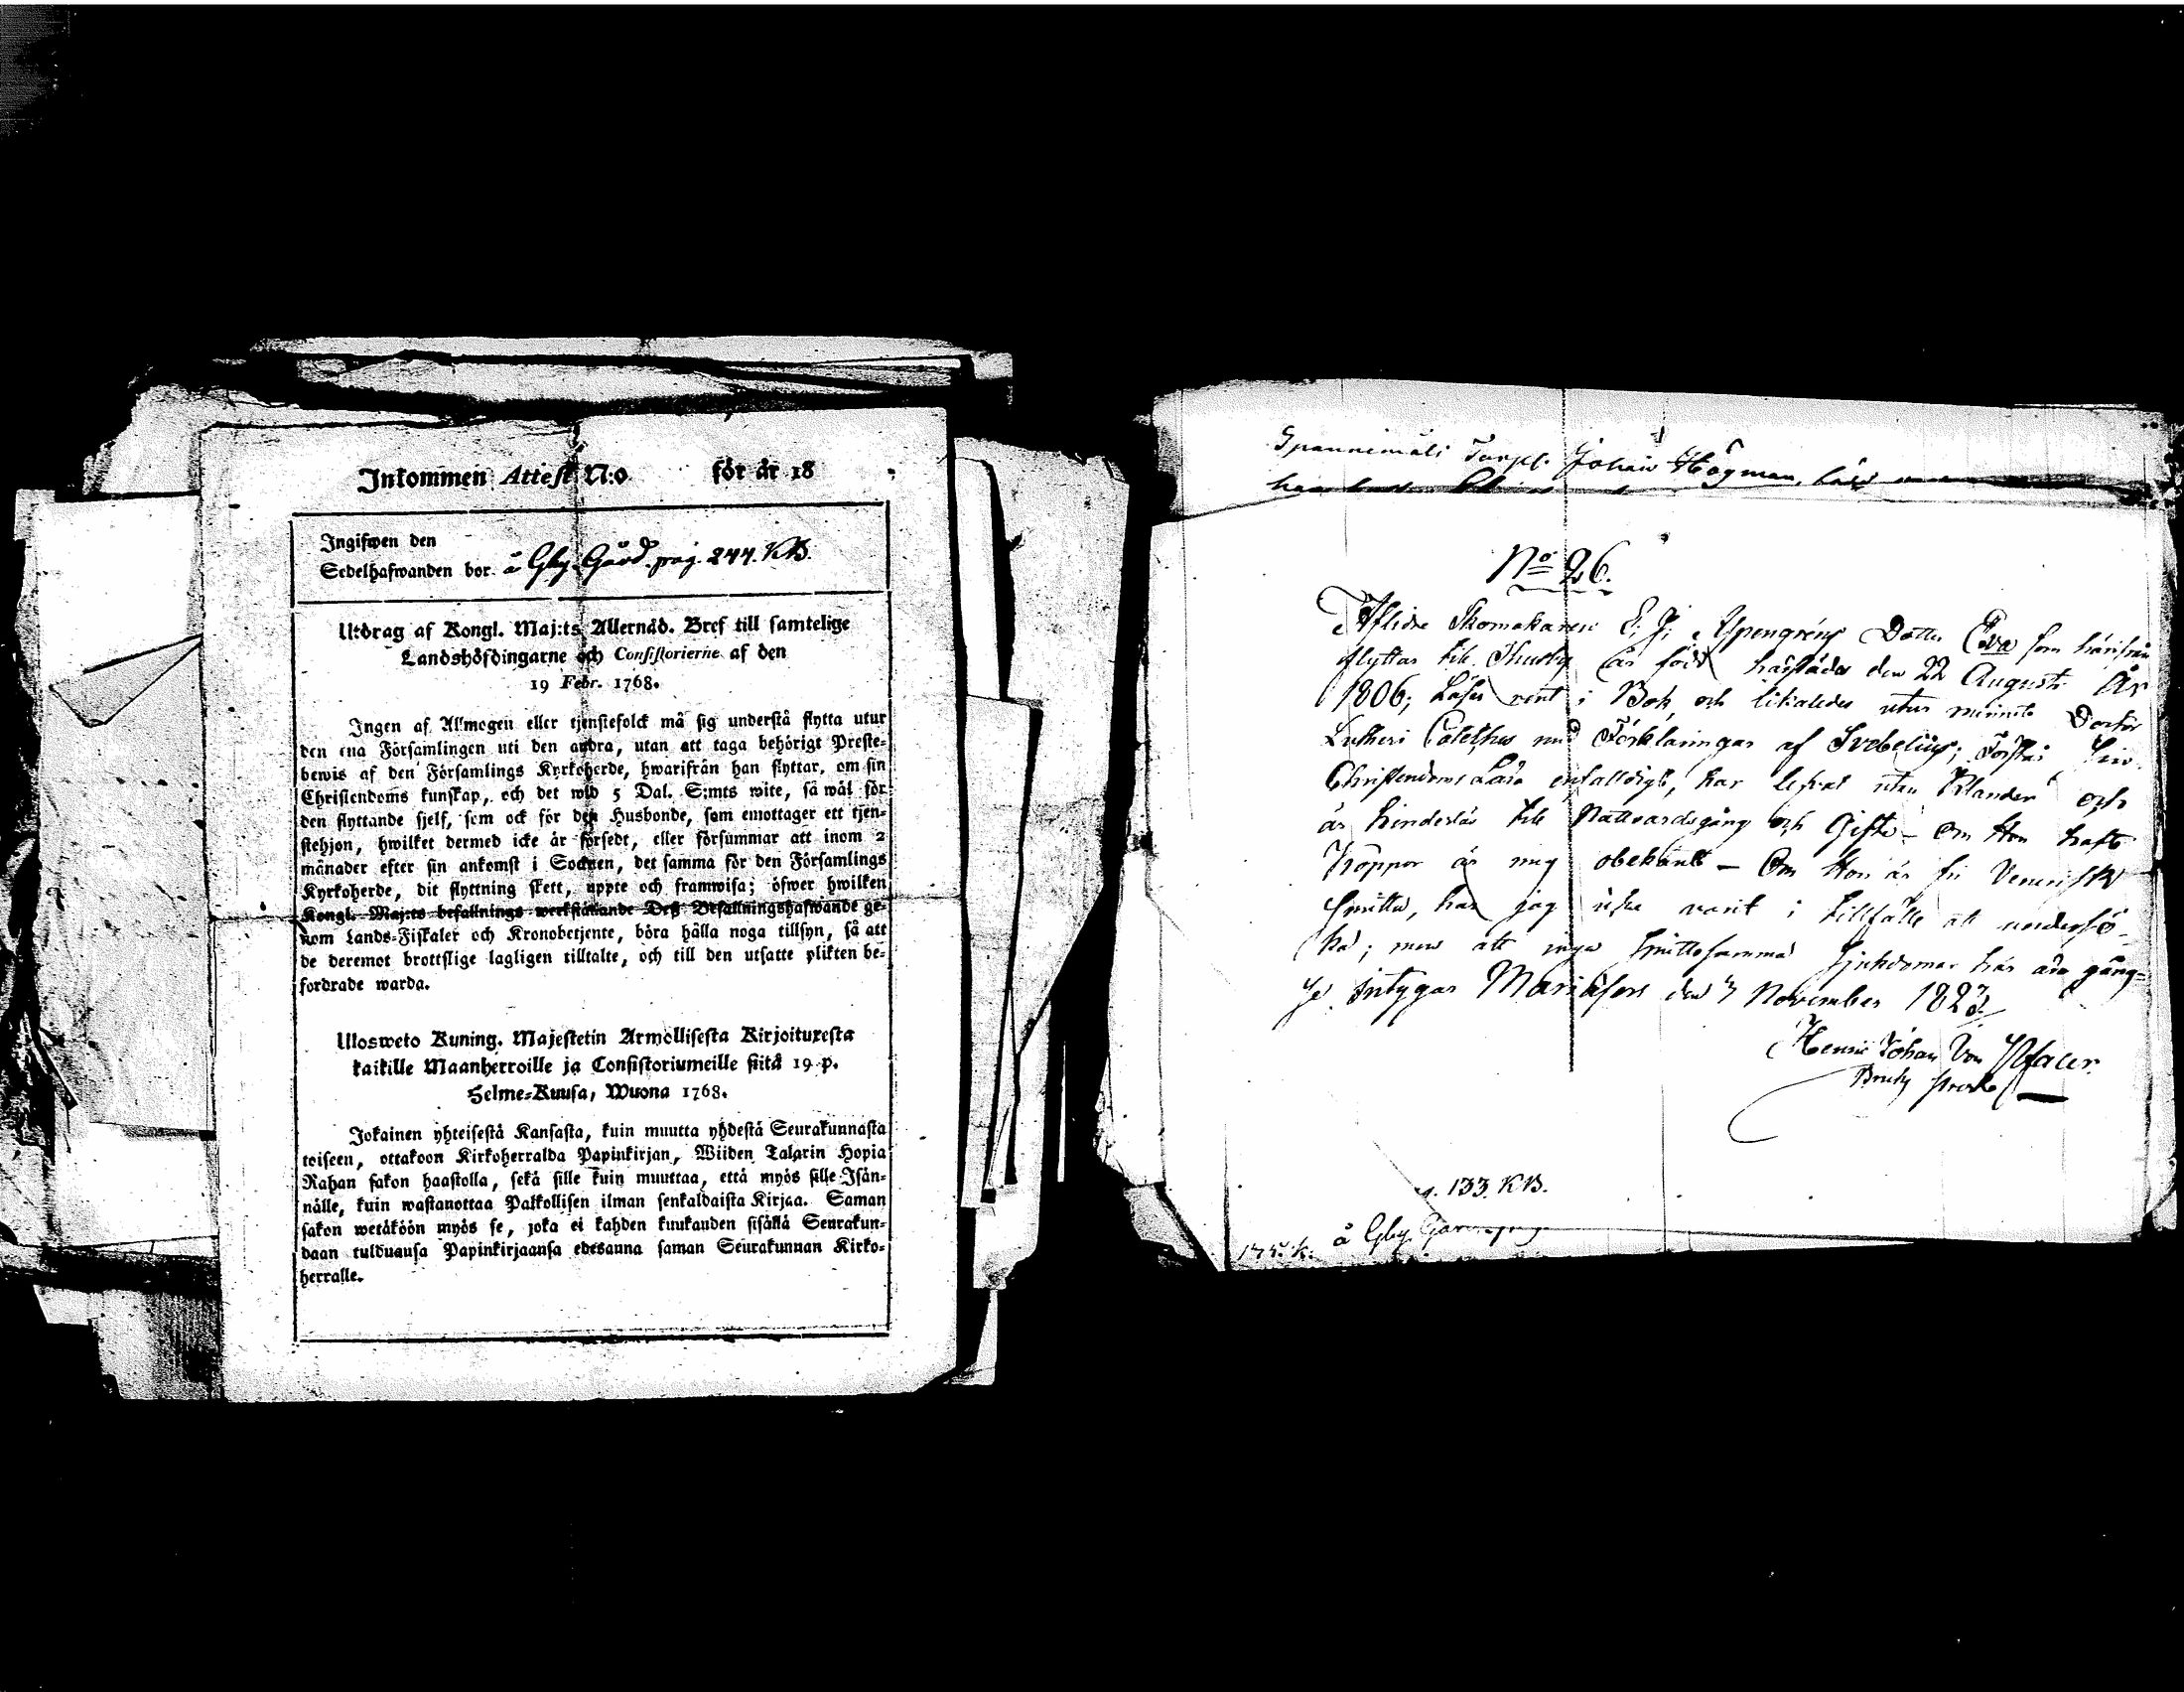 Inkommen Attest N:o för år 18
Ingifwen den
Sedelhafwanden bor å Gby Gård pag. 244. KB.
Utdrag af Kongl. Maj:ts Allernåd. Bref till samtelige
Landshöfdingarne och Consistorierne af den
19 Febr. 1768.
Ingen af Allmogen eller tjenstefolck må sig understå flytta utur
den ena Församlingen uti den andra, utan att taga behörigt Preste-
bewis af den Församlings Kyrkoherde, hwarifrån han flyttar, om sin
Christendoms kunskap, och det wid 5 Dal. S:mts wite, så wäl för
den flyttande sjelf, som ock för den Husbonde, som emottager ett tjen-
stehjon, hwilket dermed icke är försedt, eller försummar att inom 2
månader efter sin ankomst i Socknen, det samma för den Församlings
Kyrkoherde, dit flyttning skett, uppte och framwisa; öfwer hwilken
Kongl. Maj:ts befallnings werkställande Deß Befallningshafwande ge-
nom Lands-Fiskaler och Kronobetjente, böra hålla noga tillsyn, så att
de deremot brottslige lagligen tilltalte, och till den utsatte plikten be-
fordrade warda.
Ulosweto Kuning. Majestetin Armollisesta Kirjoituxesta
kaikille Maanherroille ja Consistoriumeille siitä 19 p.
Helme-Kuusa, Wuona 1768.
Jokainen yhteisestä Kansasta, kuin muutta yhdestä Seurakunnasta
toiseen, ottakoon Kirkoherralda Papinkirjan, Wiiden Talarin Hopia
Rahan sakon haastolla, sekä sille kuin muuttaa, että myös sille Isän-
nälle, kuin wastanottaa Palkollisen ilman senkaldaista Kirjaa. Saman
sakon wetäköön myös se, joka ei kahden kuukauden sisällä Seurakun-
daan tulduansa Papinkirjaansa edesanna saman Seurakunnan Kirko-
herralle.
Torp. Johan Högman,
No 26.
Aflidne Skomakaren E. J. Aspengréns Dotter Eva som härifrån
flyttar till Thusby är född härstädes den 22 Augusti År
1806; Läser rent i Bok och likaledes utur minnet Doctor
Lutheri Cateches med Förklaringar af Svebelius; Förstår sin
Christendoms Lära enfalldigt, har lefvat utan Klander och
är hinderlös till Nattvardsgång och Gifte – Om Hon haft
Koppor är mig obekant – Om Hon är fri Venerisk
Smitta, har jag icke varit i tillfälle att undersö-
ka; men att inga smittosamma Sjukdomar här äro gång-
se intygar Mariæfors den 3 November 1823.
Henric Johan Von Pfaler.
Bruks Predk.
133. KB.
å Gby Gård